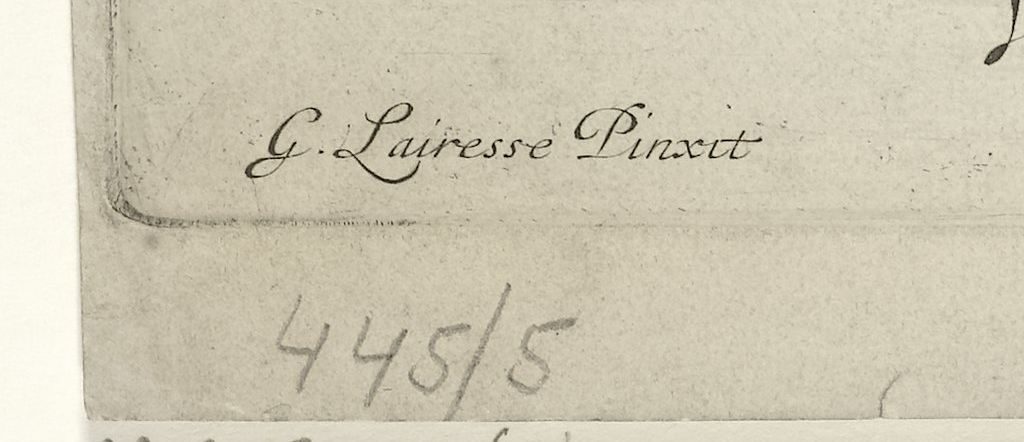 G. Lairesse Pinxit
445/5